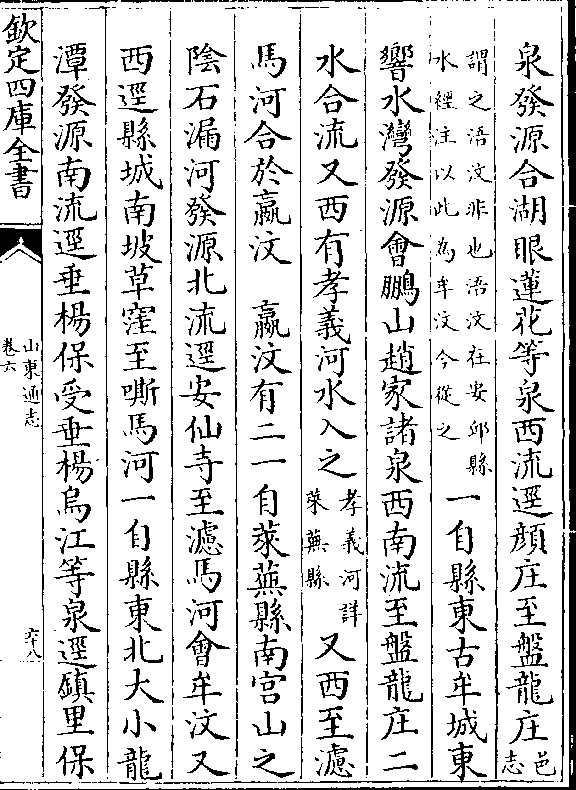 泉發源合湖眼蓮花等泉西流逕顔庄至盤龍庄邑志
謂之浯汶非也浯汶在安邱縣水經注以此為牟汶今從之一自縣東古牟城東
響水灣發源會鵬山趙家諸泉西南流至盤龍庄二
水合流又西有孝義河水入之孝義河詳萊蕪縣又西至濾
馬河合於嬴汶　嬴汶有二一自萊蕪縣南宫山之
陰石漏河發源北流逕安仙寺至濾馬河會牟汶又
西逕縣城南坡草窪至嘶馬河一自縣東北大小龍
潭發源南流逕垂楊保受垂楊烏江等泉逕鎮里保
欽定四庫全書
山東通志
卷六
六八